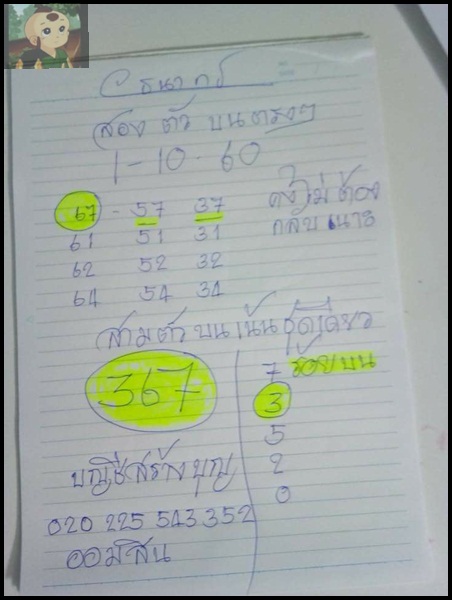 อ ธนากร
สอง ตัว บน ตรงๆ
1-10-60
67 - 57 37
61 51 31
62 52 32
64 54 34
คงไม่ต้อง
กลับนะ
สามตัวบนเน้นชุดเดียว
367
7 ร้อยบน
3
5
2
0
บัญชีสร้างบุญ
020 225 543 352
ออมสิน